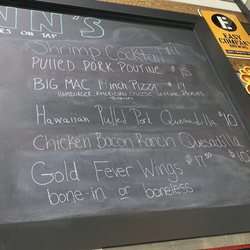 NN'S
RS ON TAP
Shrimp Cocktail
PULLED PORK POUTINE $15
BIG MAC 9 inch PIZZA $13
HAMBURGER, AMERICAN CHEESE, lettuce, Pickles,
Hawaiian Pulled Pork Quesadilla $10
Chicken Bacon Ranch Quesadilla
$10
Gold Fever Wings $17.99
bone-in or boneless
E
EASY
COMPANY